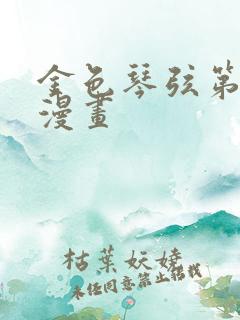 金色琴弦第
漫畫
枯葉妖嬈
未经同意禁止搭载